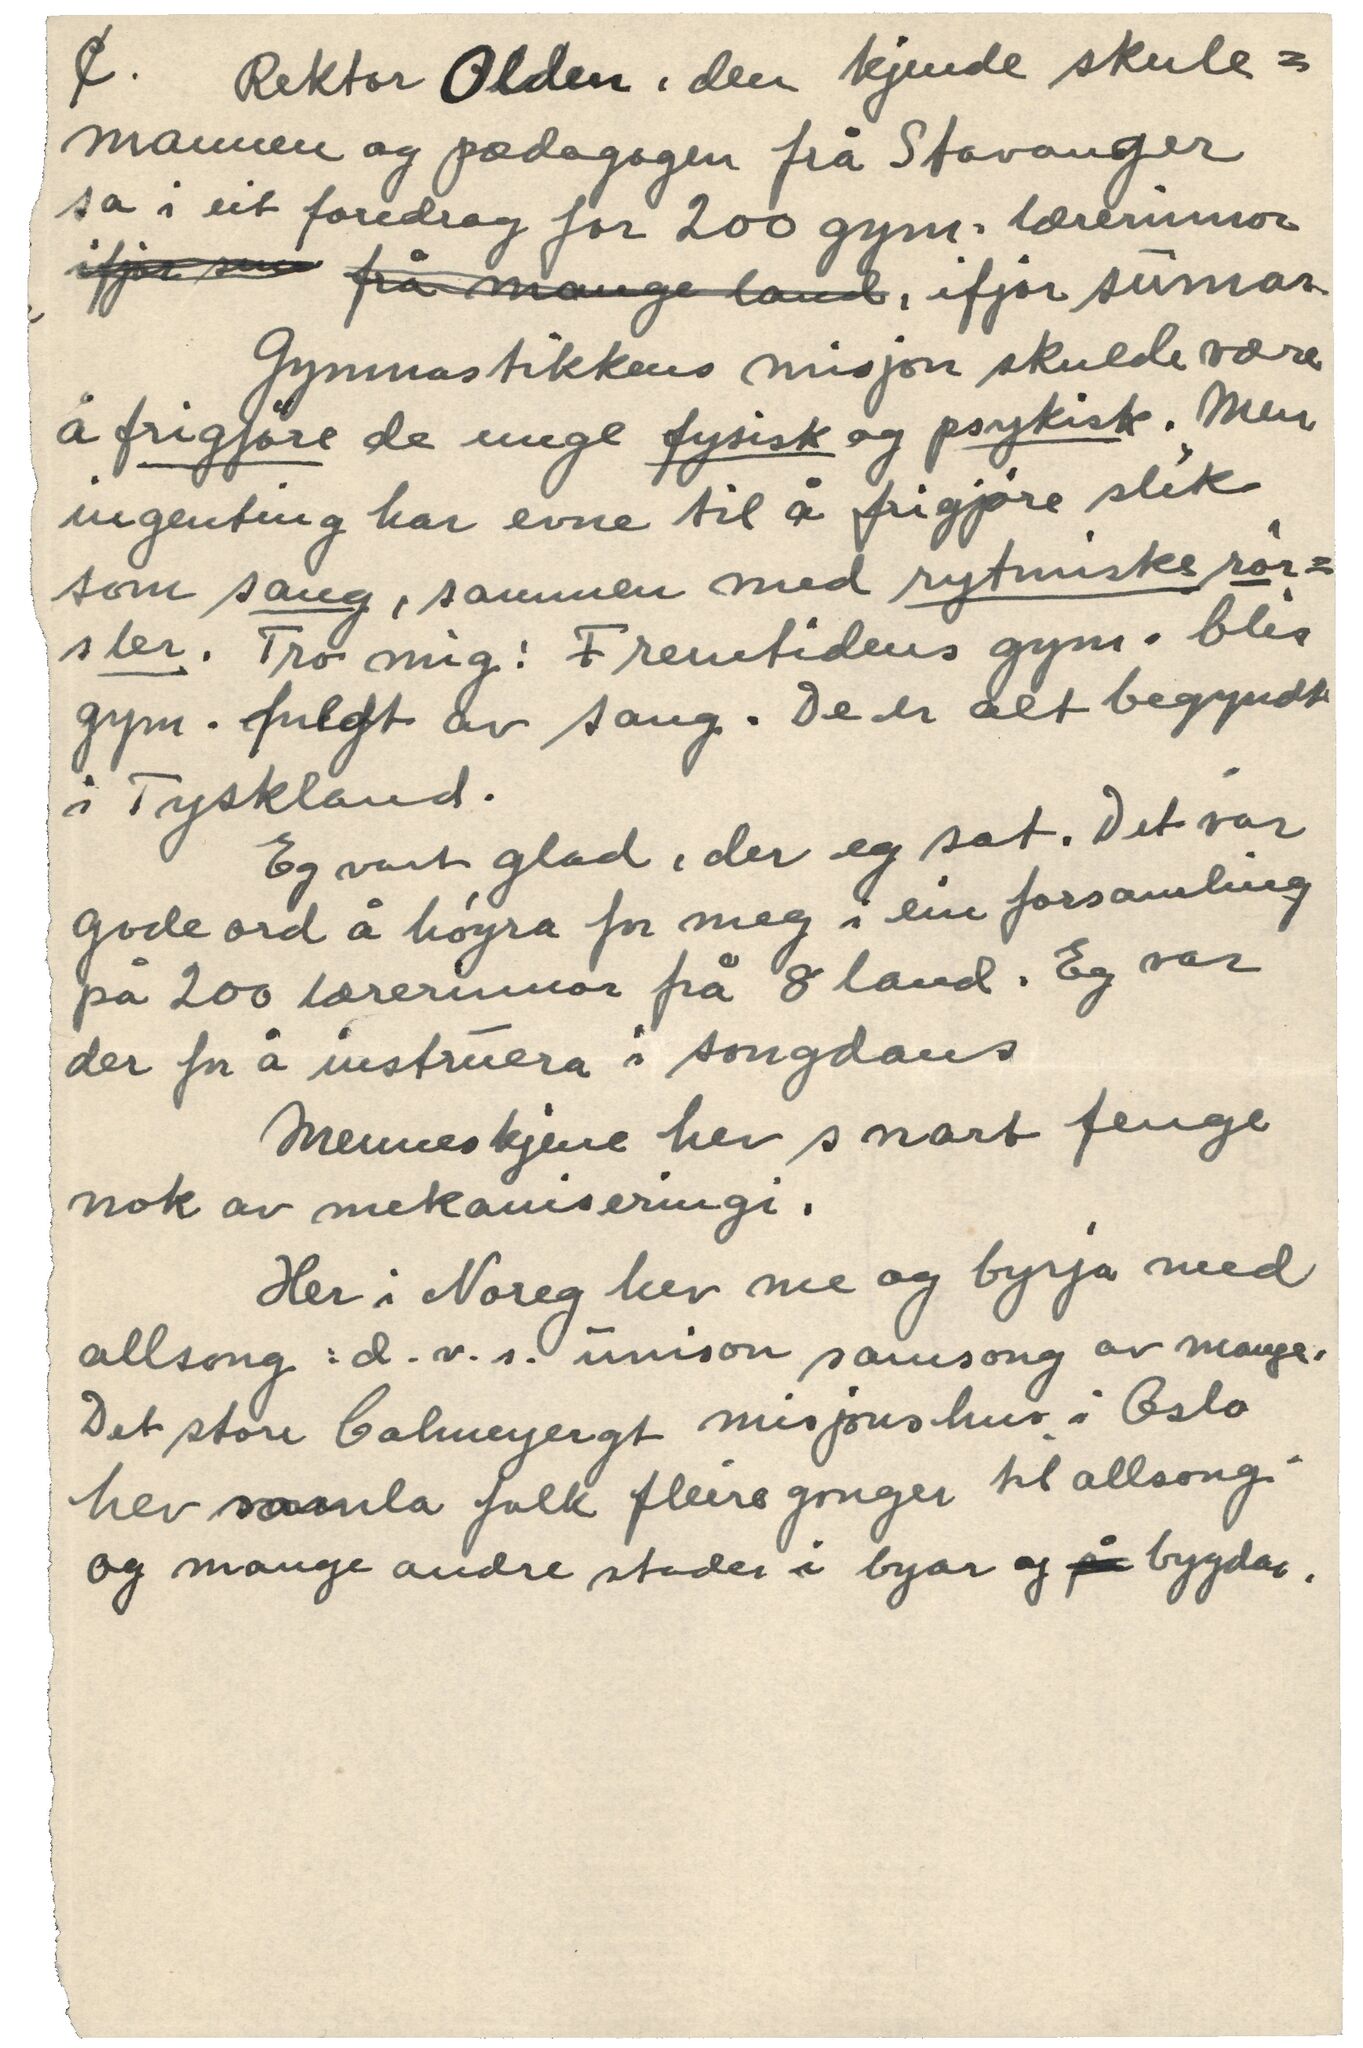 ₡. Rektor Olden, den kjende skule=
mannen og pædagogen frå Stavanger
sa i eit foredrag for 200 gym. lærerinnor
ifjor sum frå mange land, ifjor sūmar.
Gymnastikkens misjon skulde være
å frigjöre de unge fysisk og psykisk. Men
ingenting har evne til å frigjöre slik
som sang, sammen med rytmiske rör=
sler. Tro mig: Fremtidens gym. blir
gym. fuldt av sang. De er alt begyndt
i Tyskland.
Eg vart glad, der eg sat. Det var
gode ord å höyra for meg i ein forsamling
på 200 lærerinnor frå 8 land. Eg var
der for å instrūera i songdans
Menneskjene hev snart fenge
nok av mekaniseringi.
Her i Noreg hev me og byrja med
allsong: d.v.s. ūnison samsong av mange.
Det store Calmeyergt misjonshus i Oslo
hev samla folk fleire gonger til allsong.
og mange andre stader i byar og på bygdar.